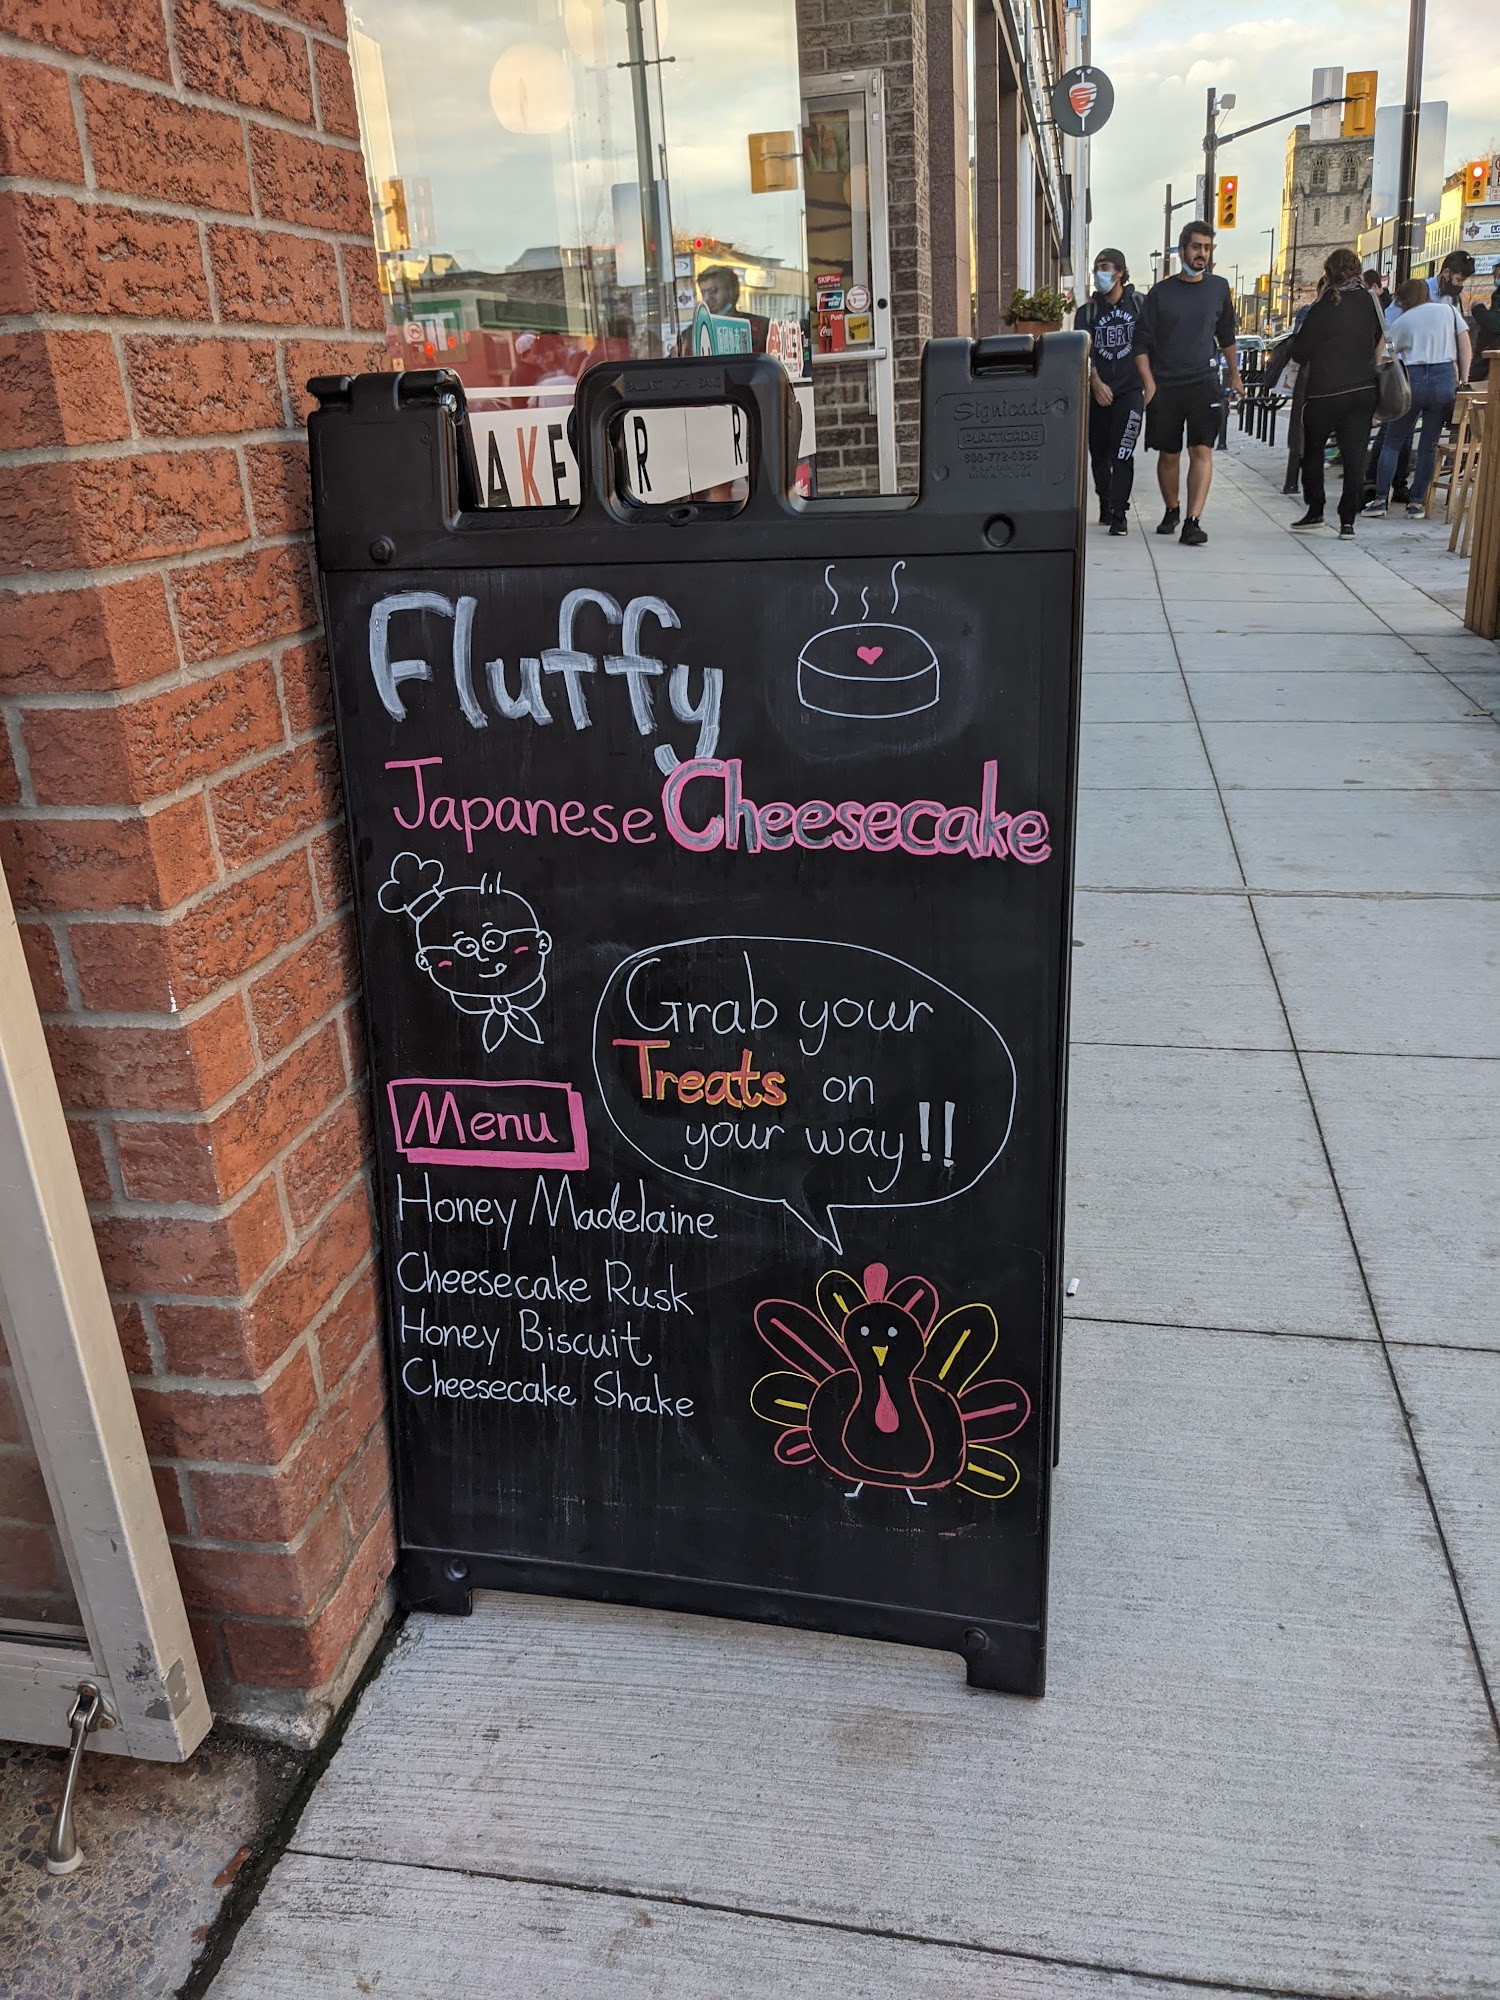 Fluffy
Japanese Cheesecake
Grab your
Treats on
your way!!
Menu
Honey Madelaine
Cheesecake Rusk
Honey Biscuit
Cheesecake Shake
Signicade
PLASTICADE
AKE
R R
AERO
87
Push